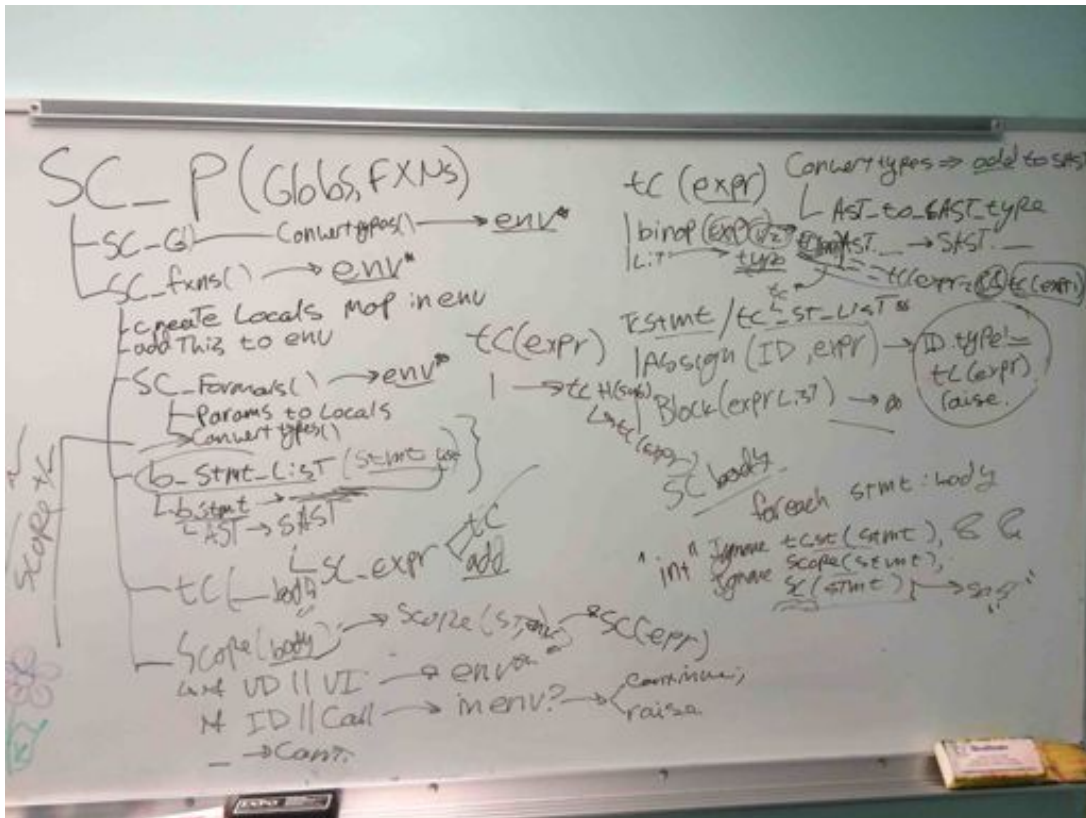 SC_P (Globs, FXNs)
SC_G() Convertypes() → env*
SC_fxns() → env*
create Locals Map in env
add This to env
SC_Formals() → env*
Params to Locals
→ Convert types()
b_stmt_List (stmt List)
b_stmt →
AST → SAST
SC_expr tC
add
tC( body
Scope(body) → Scope(ST, env) → SC(epr)
VD || VI → env*
M ID || Call → in env? → continue;
raise
_ → Cont.
Scope
tC (expr)
| → tC
tC(expr)
tC (expr)
Convert types ⇒ add to SAST
AST_to_SAST_type
| binop (Exp
AST._ → SAST._
| Lit type
tC(expr2 && tC(expr1)
stmt / tC_ST_LIST*
| Assign (ID, expr) →
ID.type !=
tC(expr)
raise.
| Block(expr List) → ∞
SC body
foreach stmt : body
"int" Ignore tCst(stmt), &&
Ignore Scope(stmt);
SC(STMT) →
EXPO